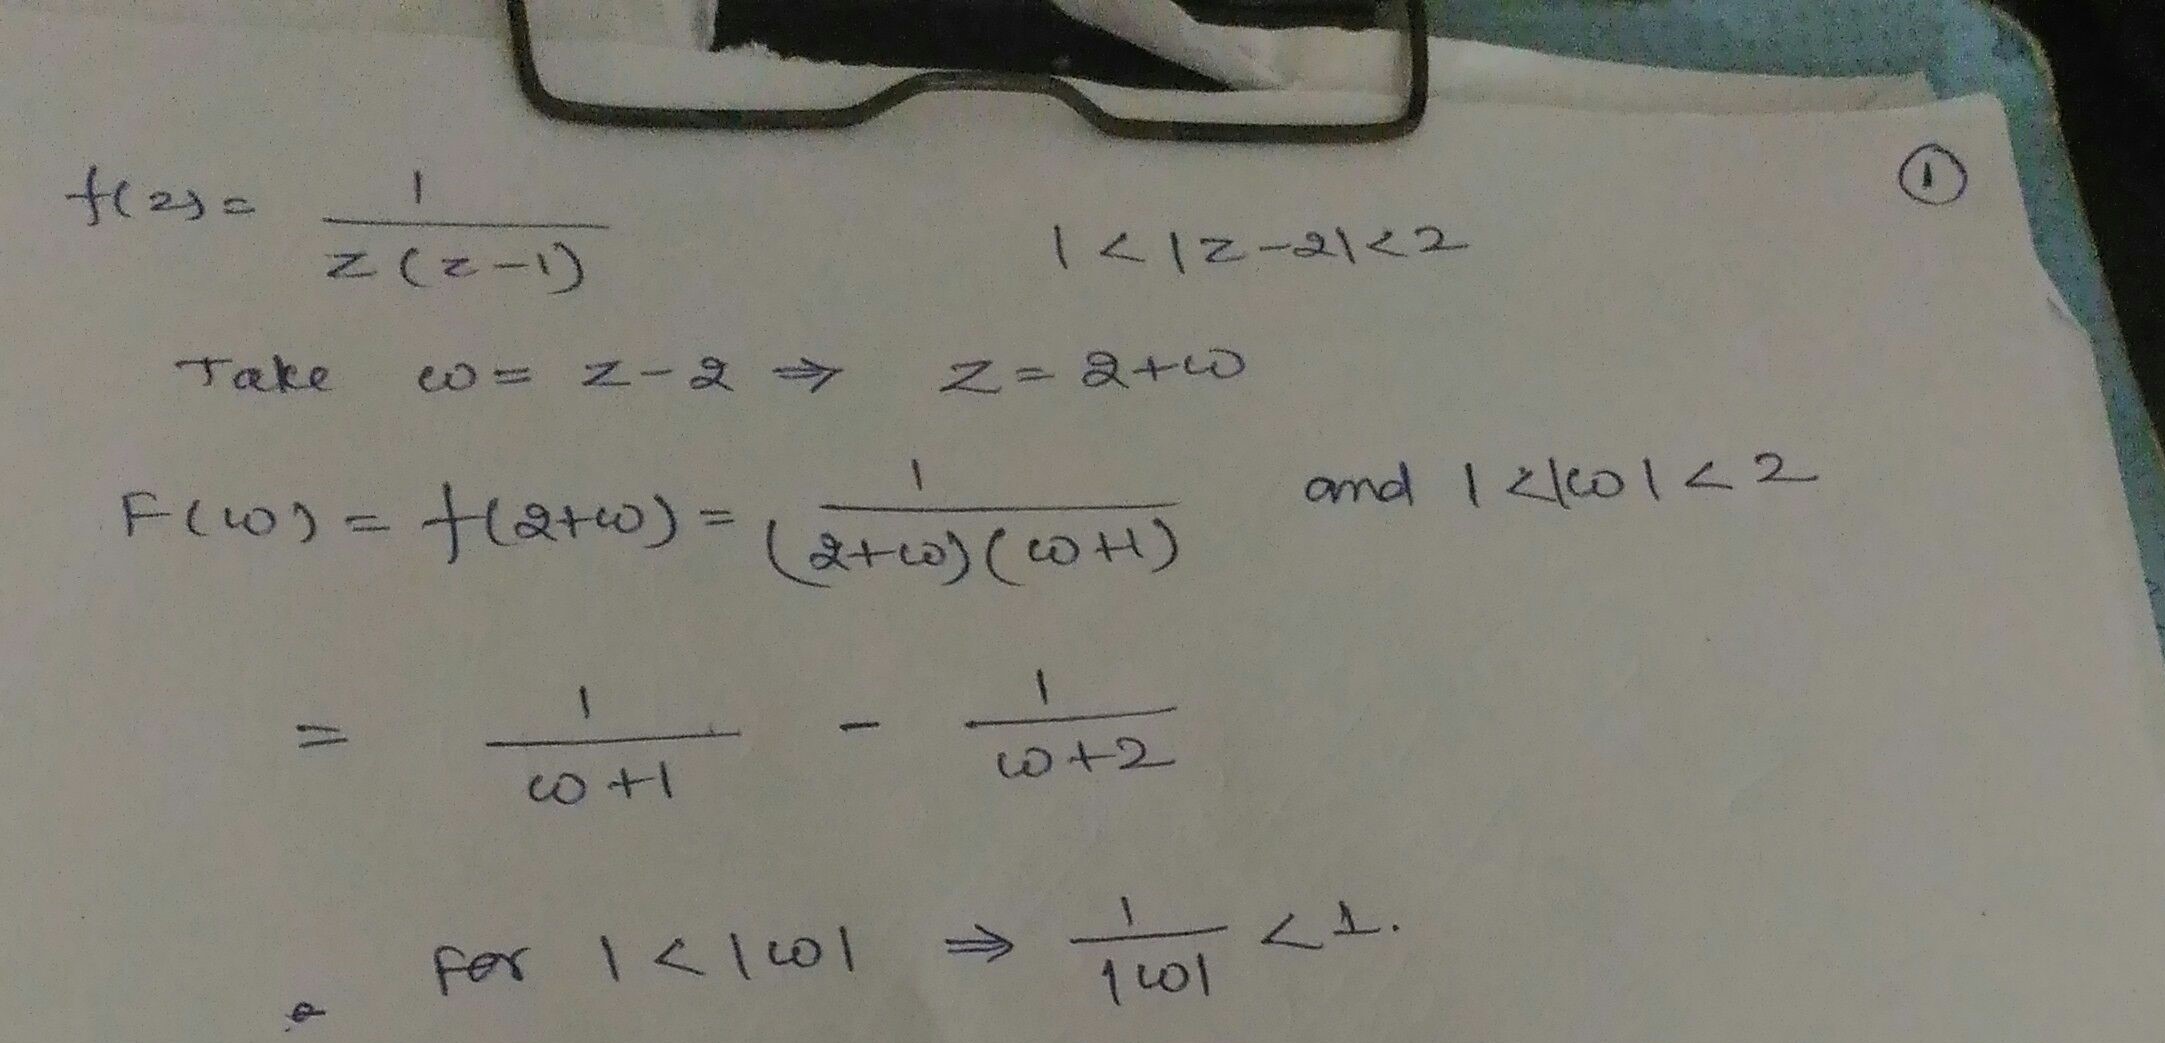 ①
f(z) = 1/(z(z-1))   1 < |z-2| < 2
Take ω = z-2 ⇒ z = 2+ω
F(ω) = f(2+ω) = 1/((2+ω)(ω+1)) and 1 < |ω| < 2
= 1/(ω+1) - 1/(ω+2)
For 1 < |ω| ⇒ 1/|ω| < 1.